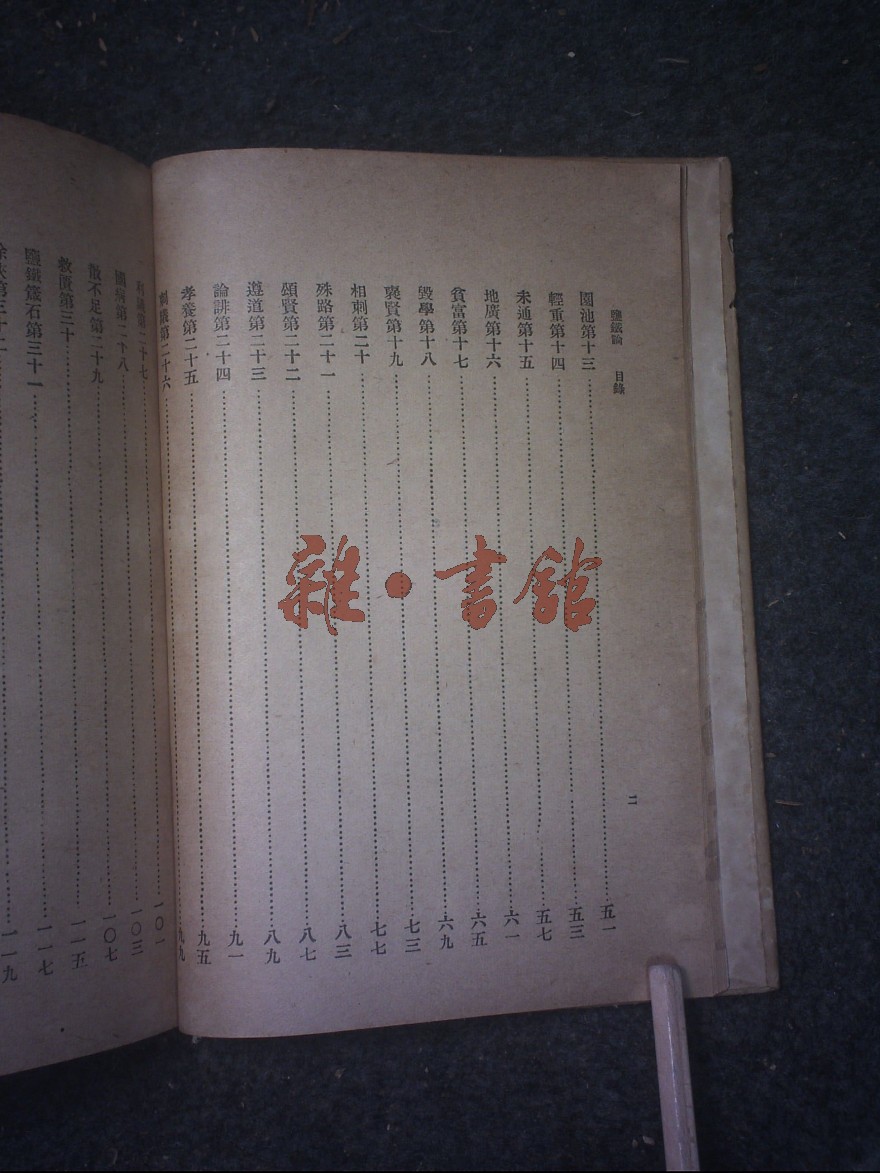 鹽鐵論 目錄
二
園池第十三……五一
輕重第十四……五三
未通第十五……五七
地廣第十六……六一
貧富第十七……六五
毀學第十八……六九
襃賢第十九……七三
相刺第二十……七七
殊路第二十一……八三
頌賢第二十二……八七
遵道第二十三……八九
論誹第二十四……九一
孝養第二十五……九五
刺議第二十六……九九
利議第二十七……一〇一
國病第二十八……一〇三
散不足第二十九……一〇七
救匱第三十……一一五
鹽鐵箴石第三十一……一一七
除狹第三十二……一一九
雜·書館